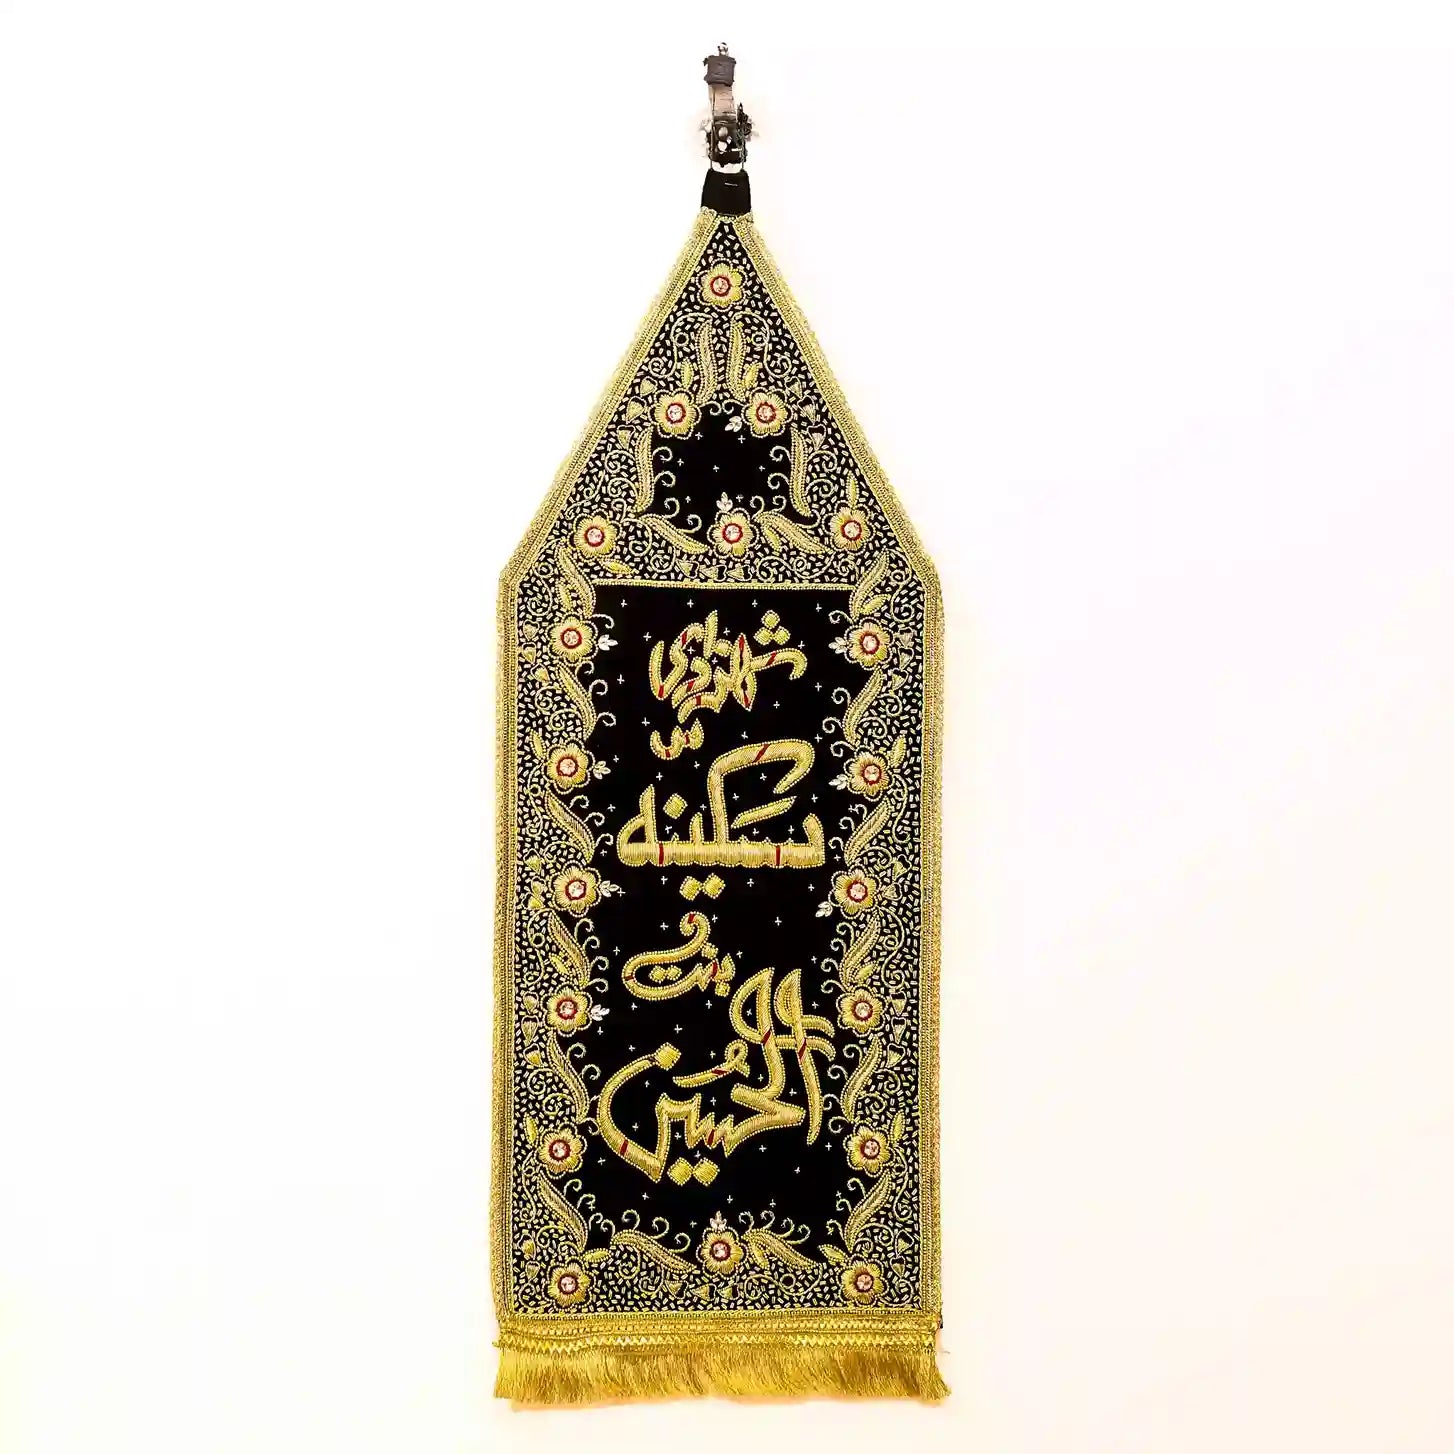 شہزادی
سکینہ
بنت
الحسین